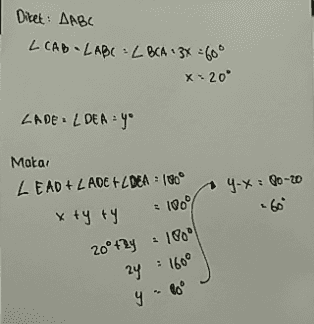 Diket : △ABC
∠CAB = ∠ABC = ∠BCA = 3x = 60°
x = 20°
∠ADE = ∠DEA = y°
Maka,
∠EAD + ∠ADE + ∠DEA = 180°
x + y + y = 180°
20° + 2y = 180°
2y = 160°
y = 80°
y - x = 80 - 20
= 60°